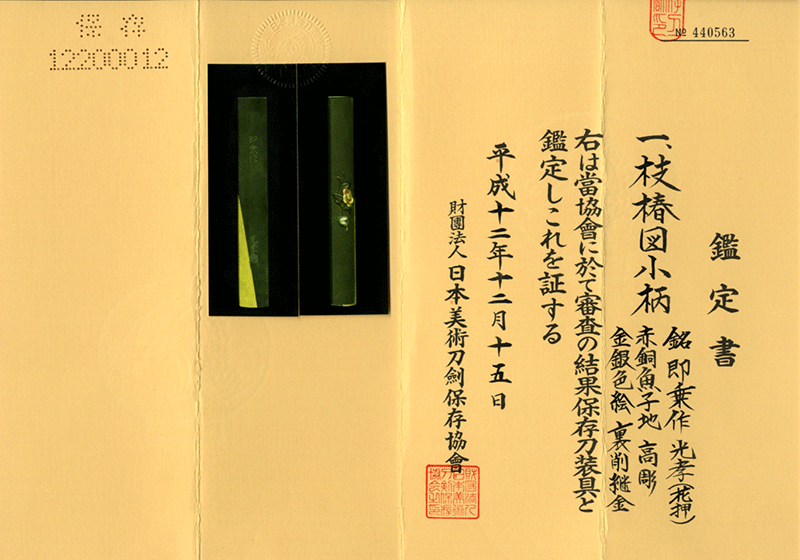 保存
12200012
№ 440563
鑑定書
一、枝椿図小柄
銘 即乗作 光孝(花押)
赤銅魚子地 高彫
金銀色絵 裏削継金
右は當協會に於て審査の結果保存刀装具と
鑑定しこれを証する
平成十二年十二月十五日
財團法人 日本美術刀劍保存協會